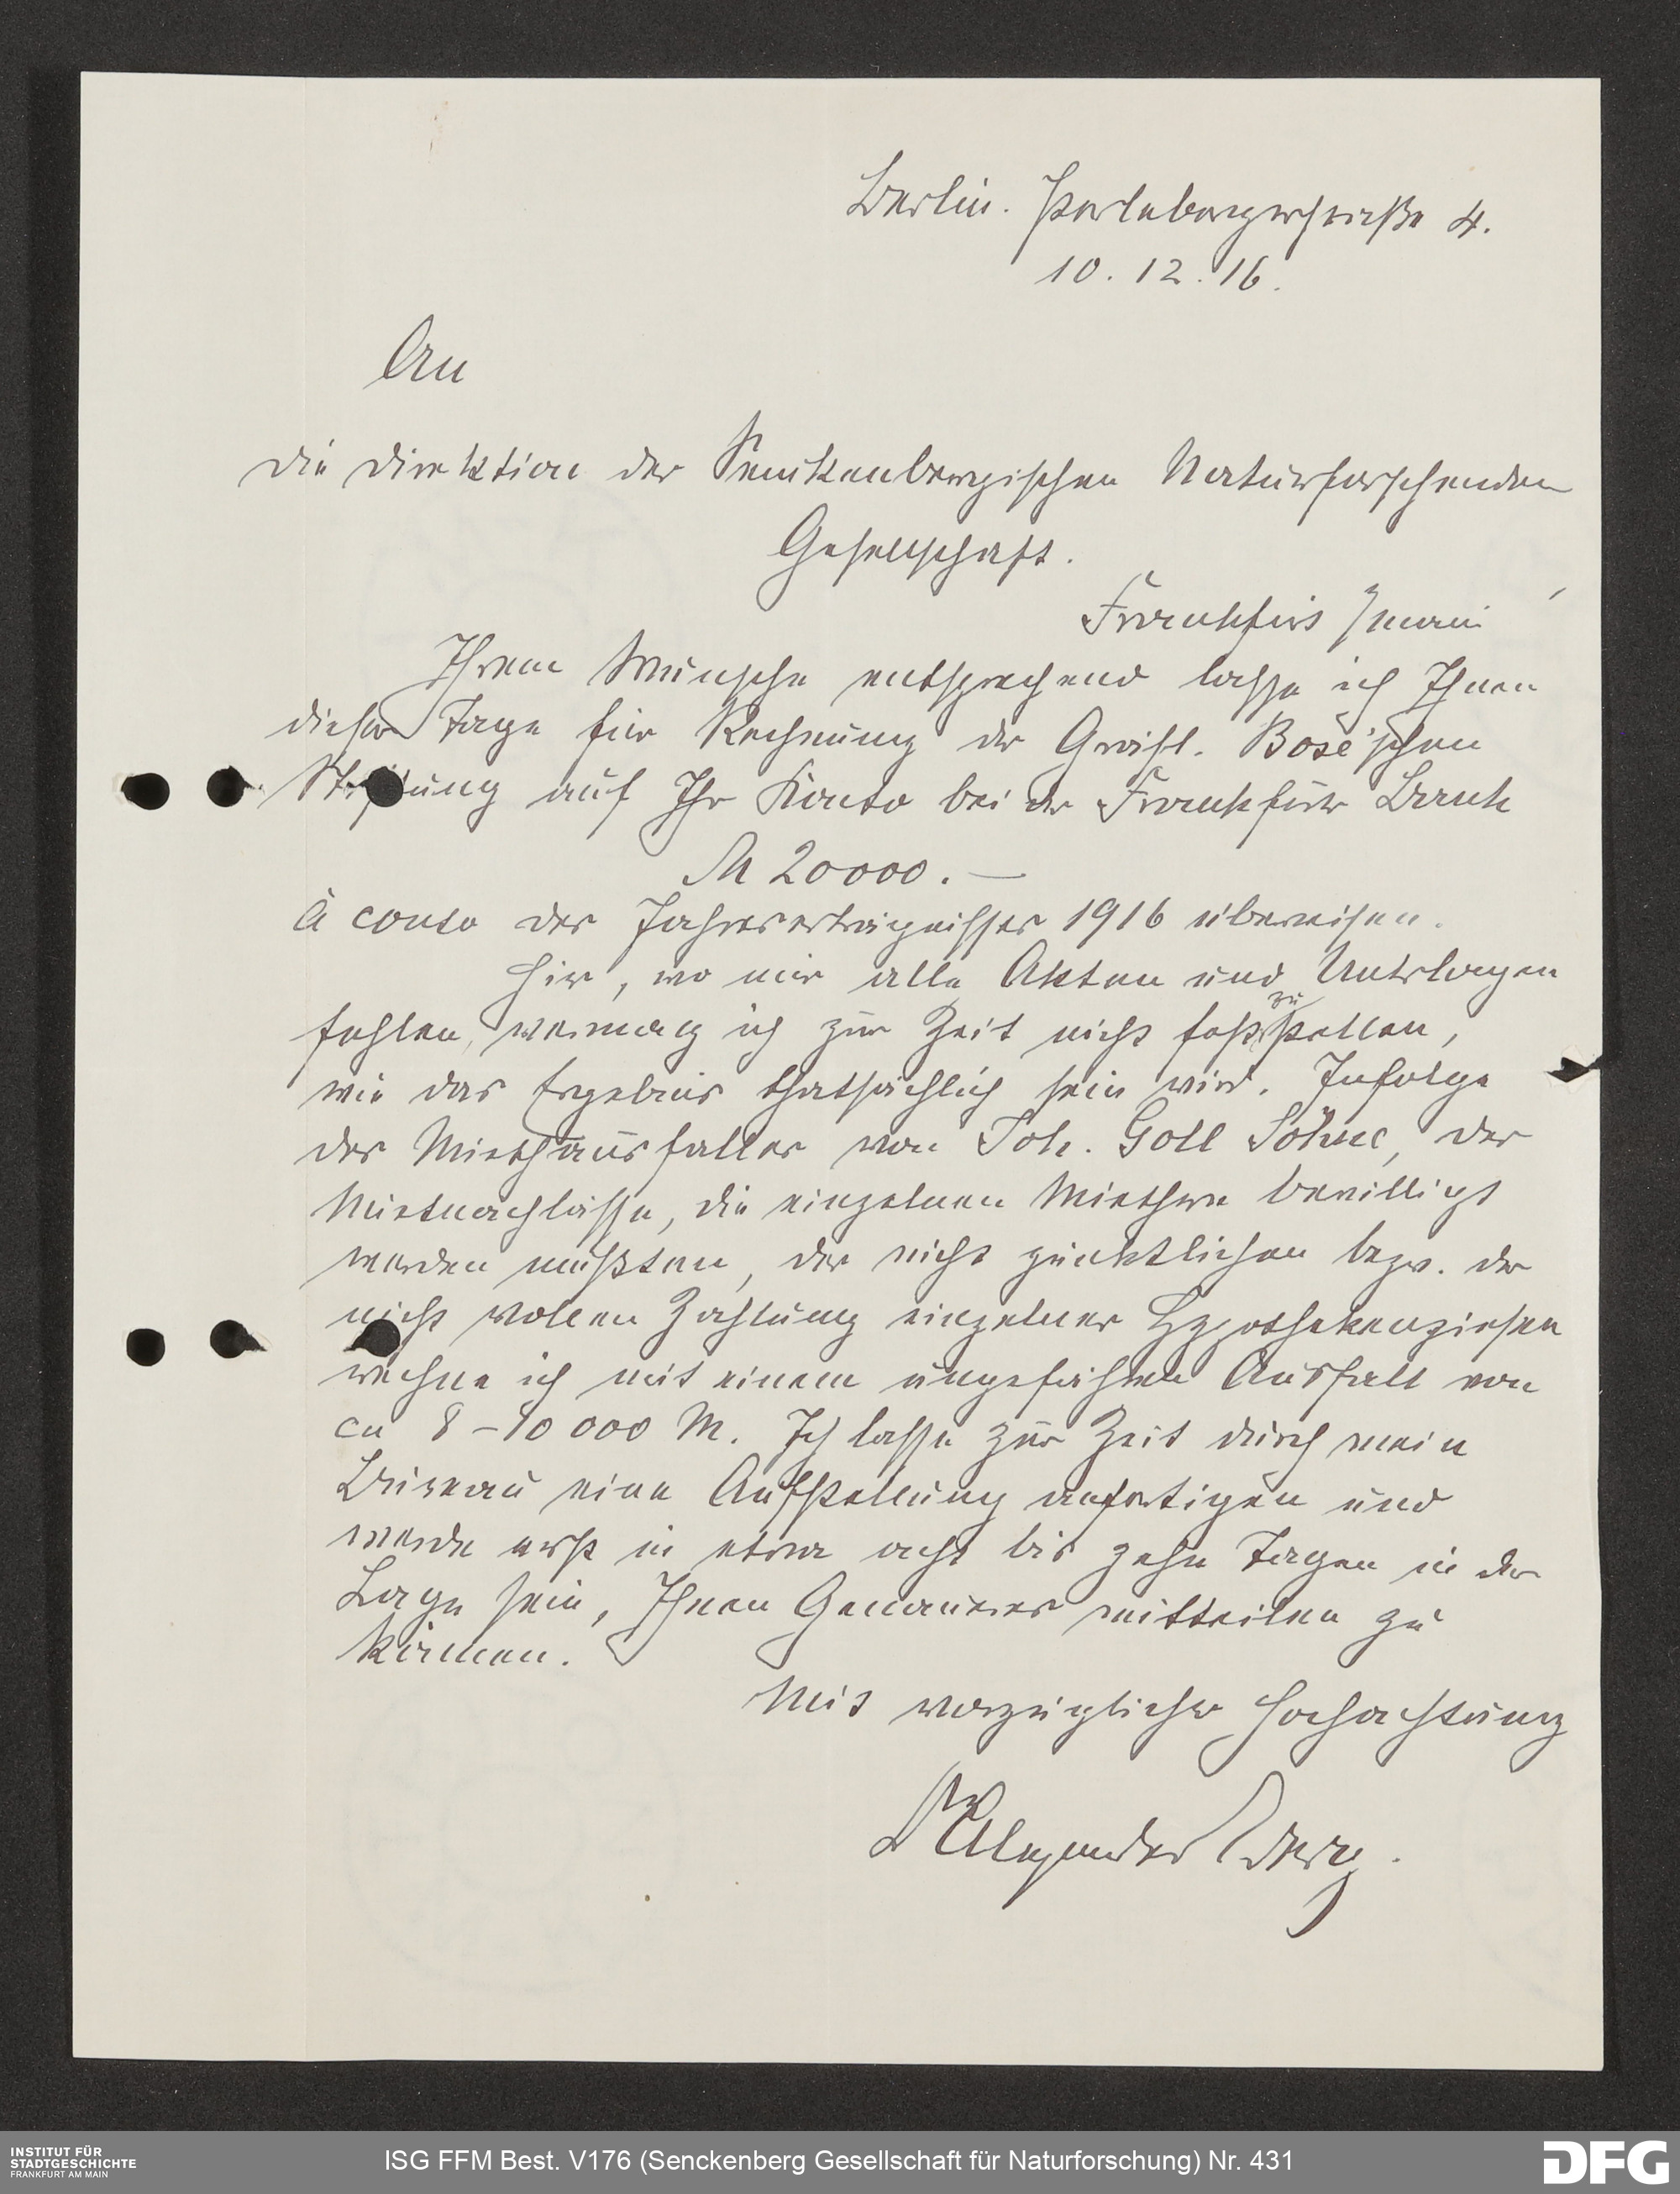 Berlin. Perlebergerstraße 4.
10. 12. 16.
An
die Direktion der Senckenbergischen Naturforschenden
Gesellschaft.
Frankfurt /Main
Ihrem Wunsche entsprechend lasse ich Ihnen
dieser Tage für Rechnung der Gräfl. Bose'schen
Stiftung auf Ihr Konto bei der Frankfurter Bank
M 20000.—
à conto des Jahreserträgnisses 1916 überweisen.
Hier, wo mir alle Akten und Unterlagen
fehlen, vermag ich zur Zeit nicht fest zu stellen,
wie das Ergebnis thatsächlich sein wird. Infolge
des Miethausfalles von Joh. Goll Söhne, der
Mietnachlässe, die einzelnen Miethern bewilligt
werden mußten, der nicht pünktlichen bezw. der
nicht vollen Zahlung einzelner Hypothekenzinsen
rechne ich mit einem ungefähren Ausfall von
ca 8–10 000 M. Ich lasse zur Zeit durch mein
Bureau eine Aufstellung anfertigen und
werde erst in etwa acht bis zehn Tagen in der
Lage sein, Ihnen Genaueres mitteilen zu
können.
Mit vorzüglicher Hochachtung
Dr Alexander Berg.
INSTITUT FÜR
STADTGESCHICHTE
FRANKFURT AM MAIN
ISG FFM Best. V176 (Senckenberg Gesellschaft für Naturforschung) Nr. 431
DFG